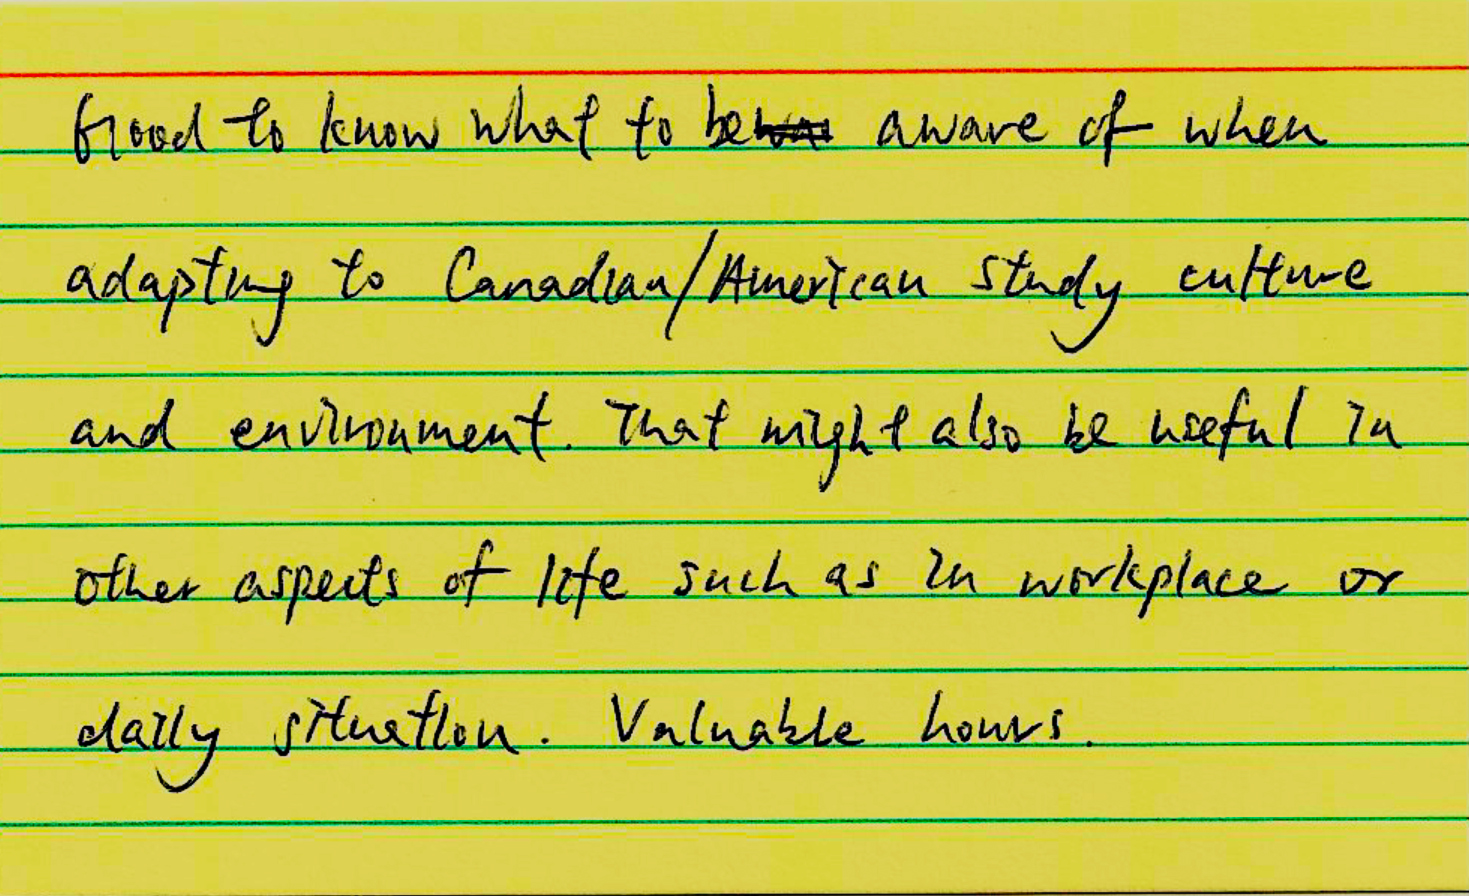 Good to know what to be aware of when
adapting to Canadian/American study culture
and environment. That might also be useful in
other aspects of life such as in workplace or
daily situation. Valuable hours.